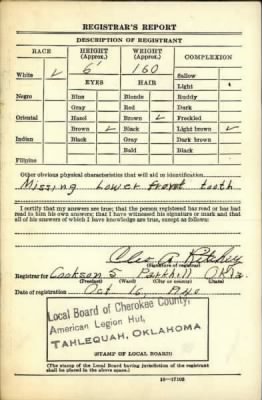 REGISTRAR'S REPORT
DESCRIPTION OF REGISTRANT
RACE HEIGHT (Approx.) WEIGHT (Approx.) COMPLEXION
6' 160
White ✓ EYES HAIR Sallow
Light
Negro Blue Blonde Ruddy
Gray Red Dark
Oriental Hazel Brown ✓ Freckled
Brown ✓ Black Light brown ✓
Indian Black Gray Dark brown
Bald Black
Filipino
Other obvious physical characteristics that will aid in identification
Missing Lower front tooth
I certify that my answers are true; that the person registered has read or has had
read to him his own answers; that I have witnessed his signature or mark and that
all of his answers of which I have knowledge are true, except as follows:
Cleo A. Ritchey
(Signature of registrar)
Registrar for Cookson 5 Parkhill Okla.
(Precinct) (Ward) (City or county) (State)
Date of registration Oct 16, 1940
Local Board of Cherokee County,
American Legion Hut,
TAHLEQUAH, OKLAHOMA
(STAMP OF LOCAL BOARD)
(The stamp of the Local Board having jurisdiction of the registrant
shall be placed in the above space.)
16—17105